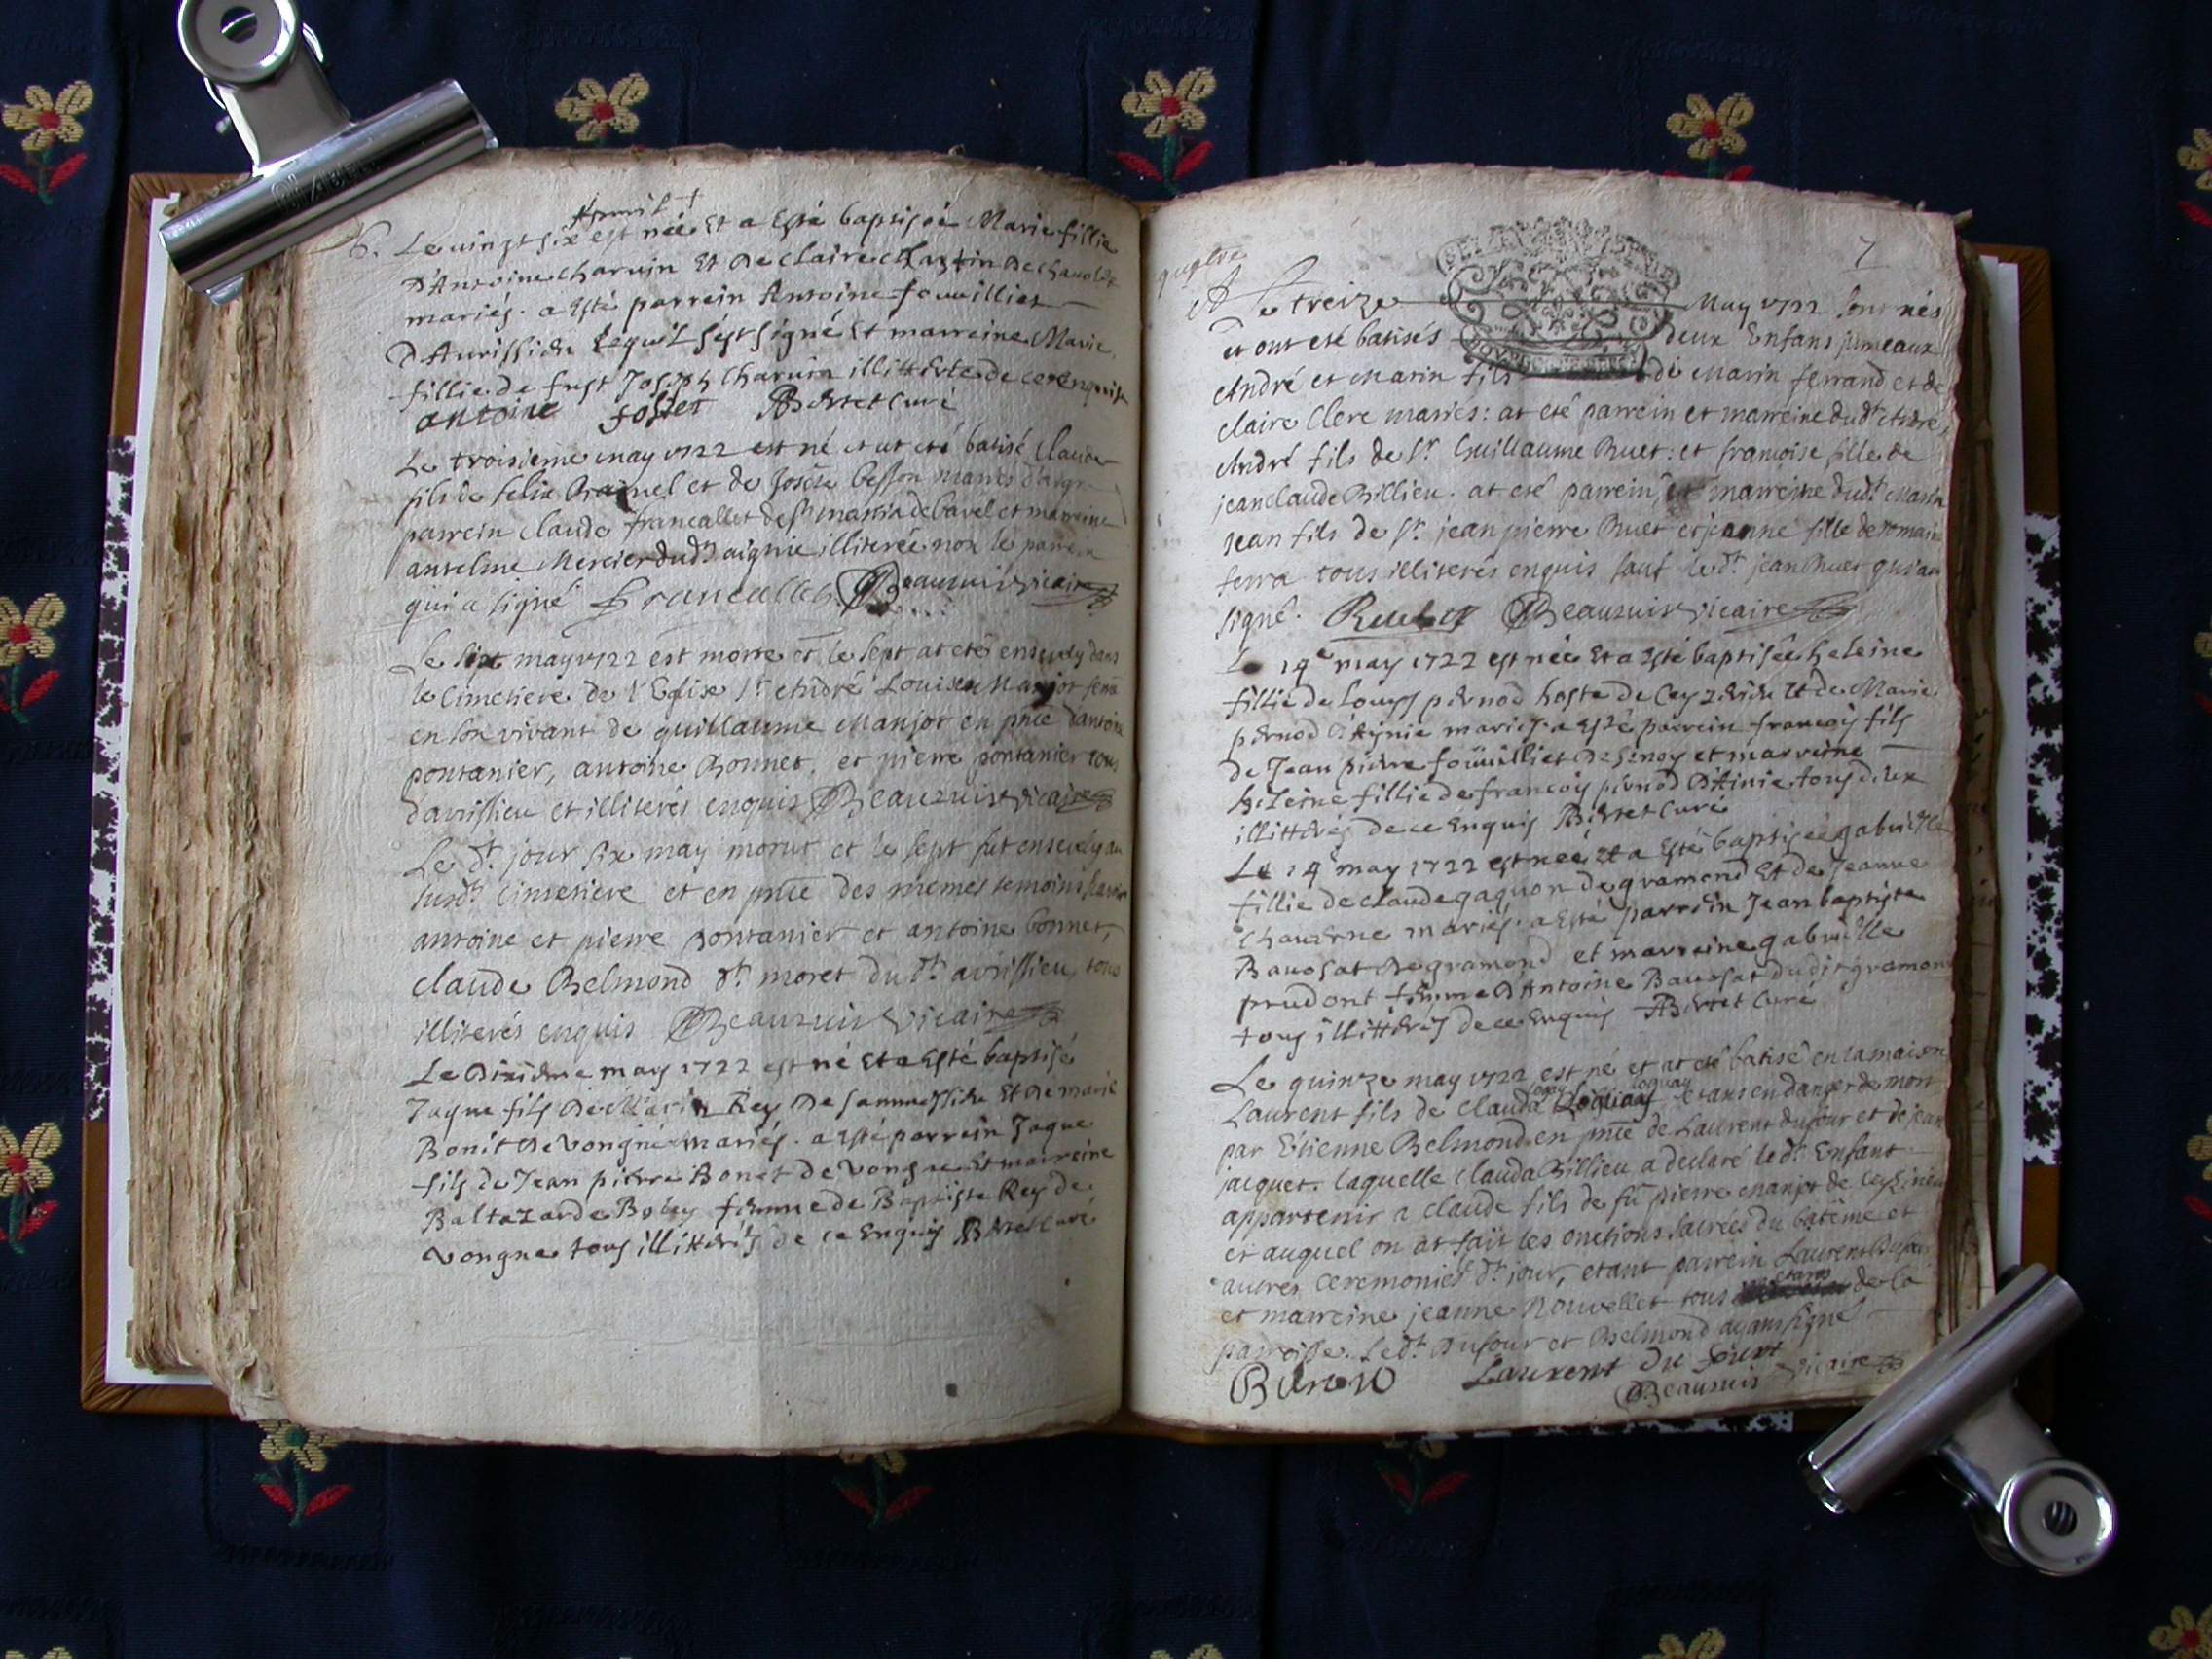 6.
Apvril +
Le vingt six est née Et a Esté baptisée Marie fillie
D'Antoine charvin Et De claire
mariés. a Esté parrein Antoine fouuilliet
D'Aurissieu lequel s'est signé Et marreine Marie
fillie de fust Joseph Charvin illitterée de ce enquise
antoine follier BertetCuré
Le troisieme may 1722 est né et at eté batisé Claude
fils de felix et de Josete besson mariés
parrein claude francallet de st martin de bavel et marreine
anteline Mercier dudt aignie illiterée non le parrein
qui a signé Francallet Beauzuis vicaire
Le sixt may 1722 est morte et le sept at eté ensevely dans
le Cimetiere de l'Eglise st André Louise Manjot feme
en son vivant de guillaume Manjot en pnce d'antoine
pontanier, antoine Bonnet, et pierre pontanier tous
d'avrissieu et illiterés enquis Beauzuis vicaire
Le dt. jour six may morut et le sept fut ensevely au
susdt. Cimetiere et en pnce des mêmes temoins
antoine et pierre pontanier et antoine bonnet,
claude Belmond dt. moret du dt. avrissieu, tous
illiterés enquis Beauzuis vicaire
Le Dixieme may 1722 est né Et a Esté baptisé
Jaque fils De Marin Rey De sammessieu Et De marie
Bonet De Vongne mariés. a Esté parrein Jaque
fils de Jean pierre Bonet de Vongne Et marreine
Baltazarde Boley femme de Baptiste Rey de
Vongne tous illitterés de ce Enquis BertetCuré
quatre
7
Le treize May 1722 sont nés
et ont eté batisés deux Enfans jumeaux
André et Marin fils de Marin ferrand et de
claire Clerc mariés: at eté parrein et marreine dudt. Andre,
André fils de sr. Guillaume Ruet: et francoise fille de
jeanclaude Billieu. at eté parrein, et marreine dudt. Marin
jean fils de sr. jean pierre Ruet et jeanne fille de romain
ferra tous illiterés enquis sauf le dt. jean Ruet qui at
signé. Beauzuis vicaire
Le 14e may 1722 est née Et a Esté baptisée heleine
fillie de Louys pernod hoste de Ceyzerieu Et de Marie
pernod D'Aignie mariés. a Esté parrein francois fils
de Jean pierre fouuilliet De senoy et marreine
heleine fillie de francois pernod D'Ainie. tous deux
illitterés de ce Enquis BertetCuré
Le 14e may 1722 est née Et a Esté baptisée gabrielle
fillie de claude gagnon de gramond Et de Jeanne
Chauerne mariés. a Esté parrein Jean baptiste
Bavosat De gramond et marreine gabrielle
prudont femme D'Antoine Bavosat dudit gramond
tous illitterés de ce Enquis BertetCuré
Le quinze may 1722 est né et at eté batisé en la maison
Laurent fils de Clauda etans en danger de mort
par Etienne Belmond en pnce de Laurent dufour et de jean
jacquet. laquelle Clauda Billieu a declaré le dt. Enfant
appartenir a claude fils de fû pierre manjot de Ceyzirieu
et auquel on at fait les onctions sacrées du batême et
autres ceremonies dt. jour, etant parrein Laurent Dufour
et marreine jeanne Nouvellet tous etans de la
parroisse. Le dt. Dufour et Belmond ayans signé
Laurent du fourt
Beauzuis vicaire